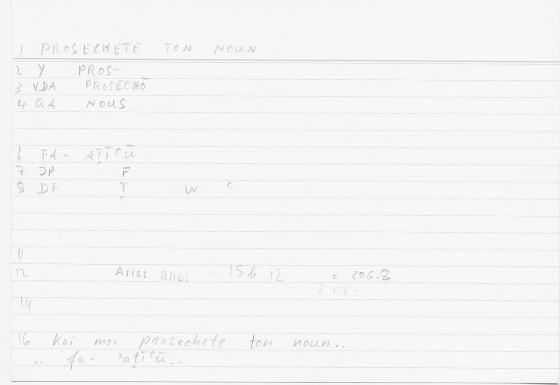 1 PROSECHETE TON NOUN
2 Y PROS-
3 VDA PROSECHŌ
4 QA NOUS
6 FA- AṬĪʿŪ
7 JP F
8 DF Ṭ W ʿ
11
12 Arist Rhet 15 b 12 c 206.8
14
16 Kai moi prosechete ton noun..
.. fa- ʾaṭīʿū..